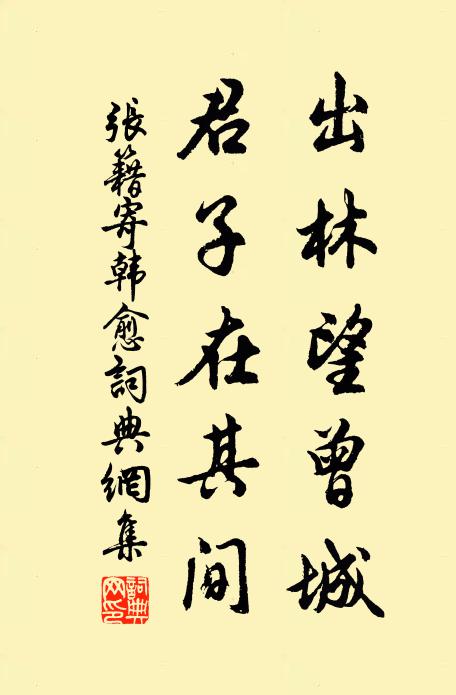 出林望曾城
君子在其间
張籍寄韩愈詞典網集
詞典網印